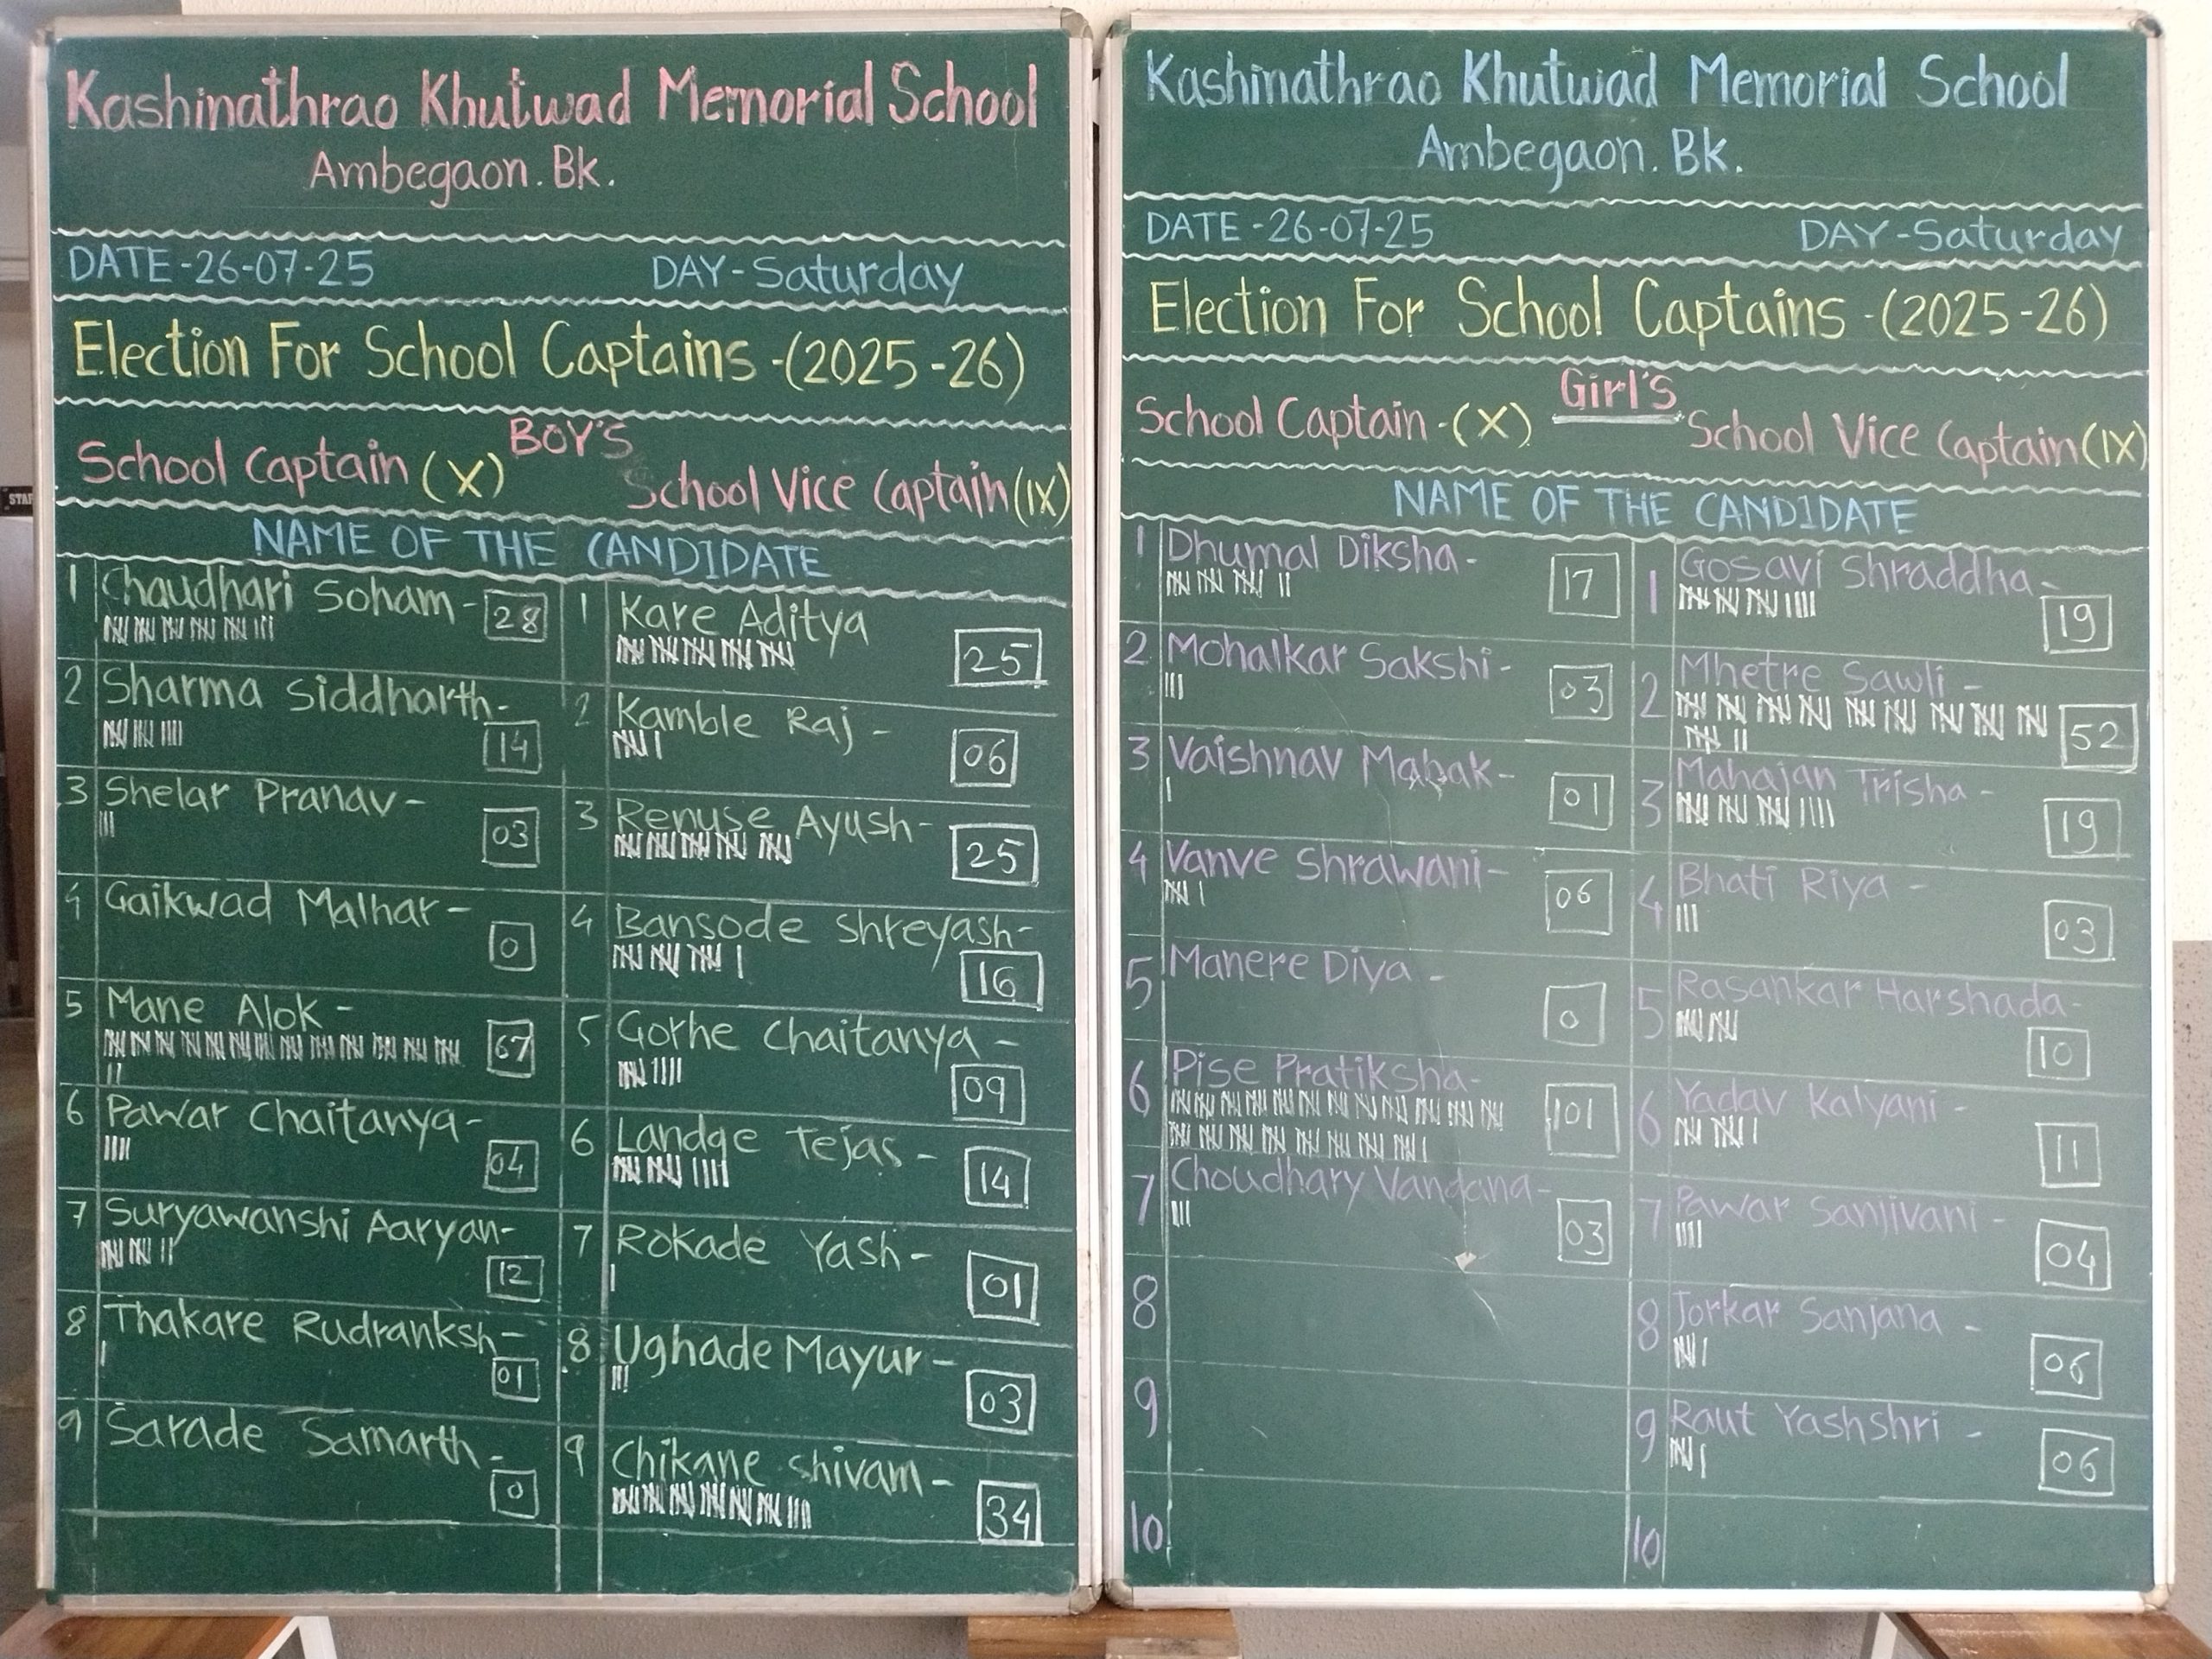 Kashinathrao Khutwad Memorial School
Ambegaon. Bk.
DATE-26-07-25 DAY-Saturday
Election For School Captains -(2025-26)
BOY'S
School Captain (X) School Vice Captain (IX)
NAME OF THE CANDIDATE
1 Chaudhari Soham - 28
2 Sharma Siddharth - 14
3 Shelar Pranav - 03
4 Gaikwad Malhar - 0
5 Mane Alok - 67
6 Pawar Chaitanya - 04
7 Suryawanshi Aaryan - 12
8 Thakare Rudranksh - 01
9 Sarade Samarth - 0
1 Kare Aditya 25
2 Kamble Raj - 06
3 Renuse Ayush - 25
4 Bansode Shreyash - 16
5 Gorhe Chaitanya - 09
6 Landge Tejas - 14
7 Rokade Yash - 01
8 Ughade Mayur - 03
9 Chikane Shivam - 34
Kashinathrao Khutwad Memorial School
Ambegaon. Bk.
DATE -26-07-25 DAY-Saturday
Election For School Captains -(2025-26)
Girl's
School Captain -(X) School Vice Captain (IX)
NAME OF THE CANDIDATE
1 Dhumal Diksha - 17
2 Mohalkar Sakshi - 03
3 Vaishnav - 01
4 Vanve Shrawani - 06
5 Manere Diya - 0
6 Pise Pratiksha - 101
7 Choudhary Vandana - 03
8
9
10
1 Gosavi Shraddha - 19
2 Mhetre Sawli - 52
3 Mahajan Trisha - 19
4 Bhati Riya - 03
5 Rasankar Harshada - 10
6 Yadav Kalyani - 11
7 Pawar Sanjivani - 04
8 Jorkar Sanjana - 06
9 Raut Yashshri - 06
10